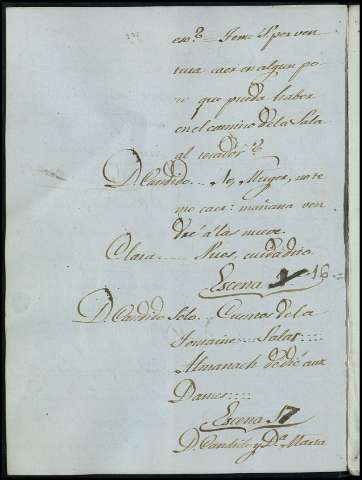 eso? Teme Vd por ven
tura caer en algun po
zo que pueda haber
en el camino de la Sala
al tocador?
D. Candido.. No, Muger, no te
mo caer: mañana ven
dré á las nueve.
Clara..... Pues, cuidadito.
Escena 16
D. Candido Solo.. Cuentos de la
Fontaine... Salas...
Almanach dedié aux
Dames....
Escena 17
D. Candido y Dª Marta